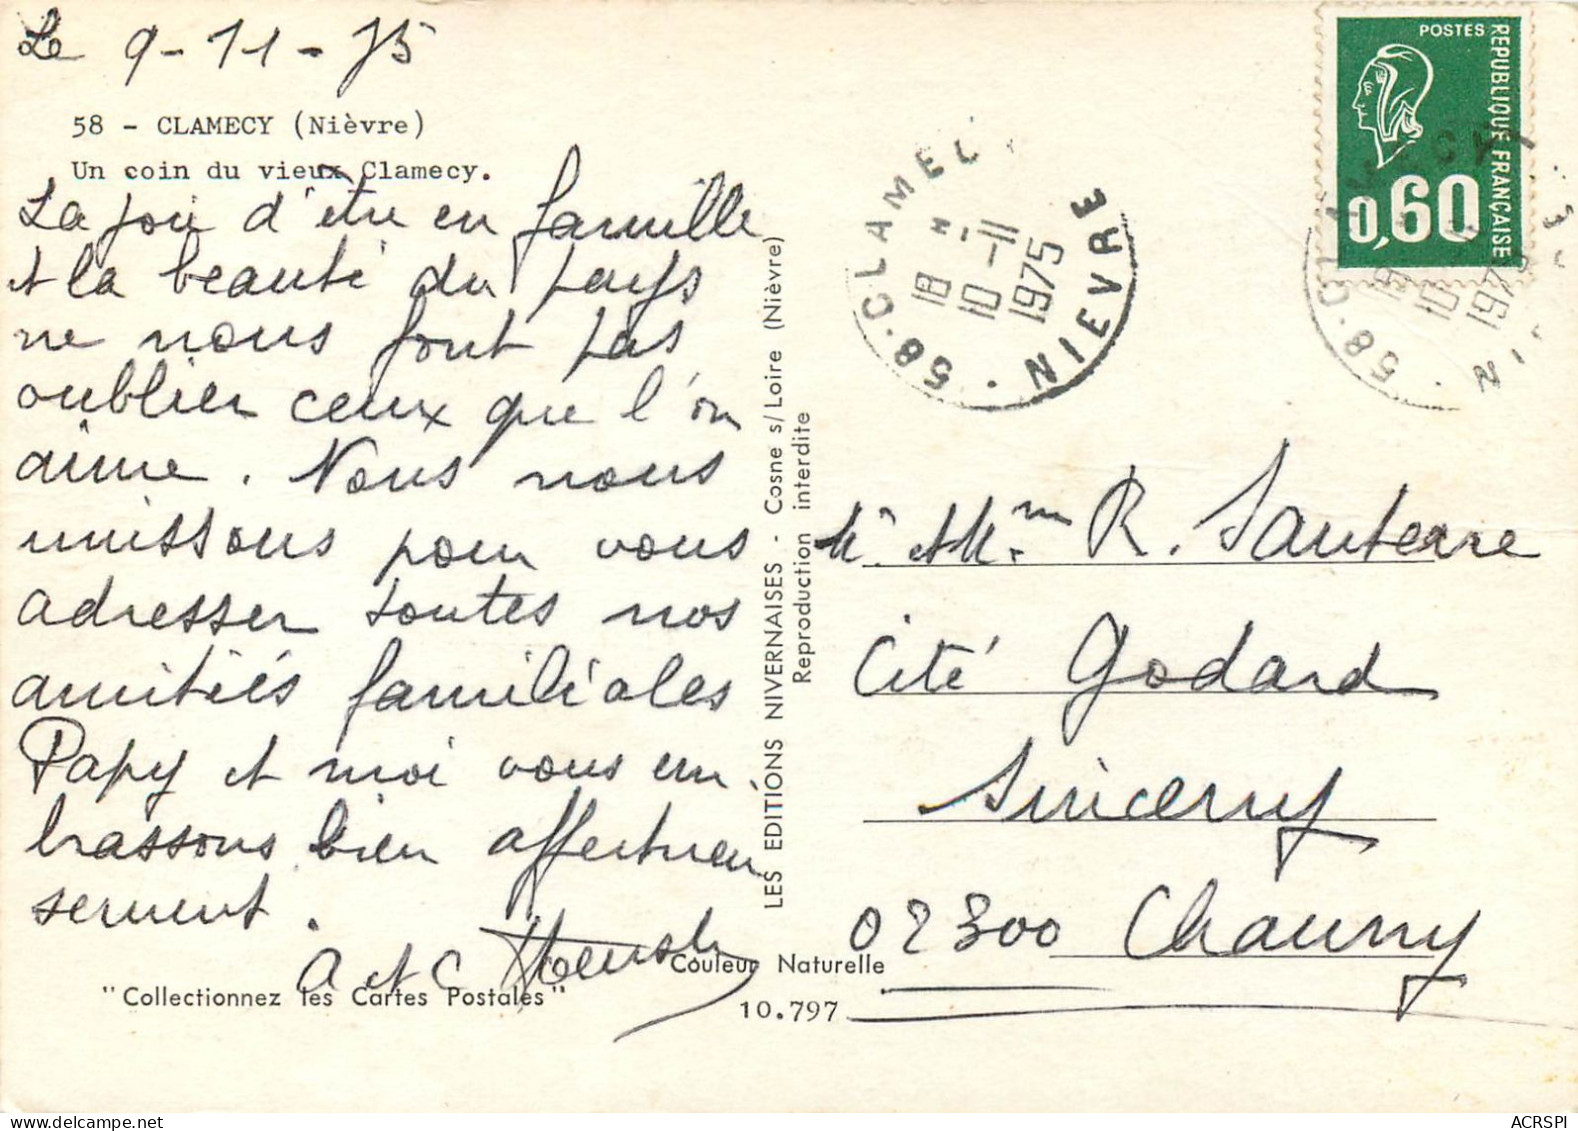 Le 9-11-75
58 - CLAMECY (Nièvre)
Un coin du vieux Clamecy.
La joie d'être en famille
et la beauté du pays
ne nous font pas
oublier ceux que l'on
aime. Nous nous
unissons pour vous
adresser toutes nos
amitiés familiales
Papy et moi vous em
brassons bien affectueu
sement.
A et C
"Collectionnez les Cartes Postales"
Couleur Naturelle
10.797
LES EDITIONS NIVERNAISES - Cosne s/Loire (Nièvre)
Reproduction interdite
58 · CLAMECY · NIEVRE
18 H.
10-11
1975
POSTES
REPUBLIQUE FRANÇAISE
0,60
58 · CLAMECY
1975
Mr et Mme R. Sauterre
Cité Godard
Sinceny
02300 Chauny
ACRSPI